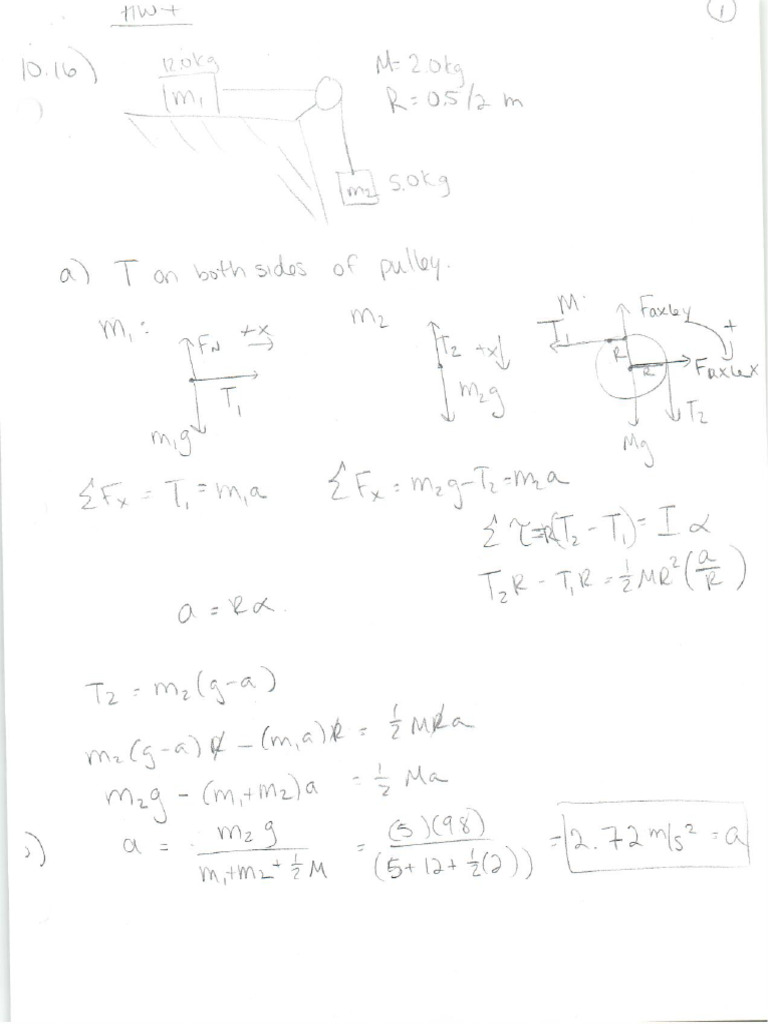 HW 7
1
10.16)
12.0kg
m₁
M = 2.0kg
R = 0.5/2 m
m₂ 5.0kg
a) T on both sides of pulley.
m₁:
F_N +x
T₁
m₁g
m₂
T₂ +x
m₂g
M:
F axle y
T₁ +
R
R F axle x
T₂
Mg
ΣFₓ = T₁ = m₁a
ΣFₓ = m₂g - T₂ = m₂a
Στ = R(T₂ - T₁) = Iα
T₂R - T₁R = ½MR²(a/R)
a = Rα.
T₂ = m₂(g-a)
m₂(g-a)R - (m₁a)R = ½MRa
m₂g - (m₁+m₂)a = ½Ma
b) a = m₂g / (m₁+m₂+½M) = (5)(9.8) / (5+12+½(2)) = 2.72 m/s² = a